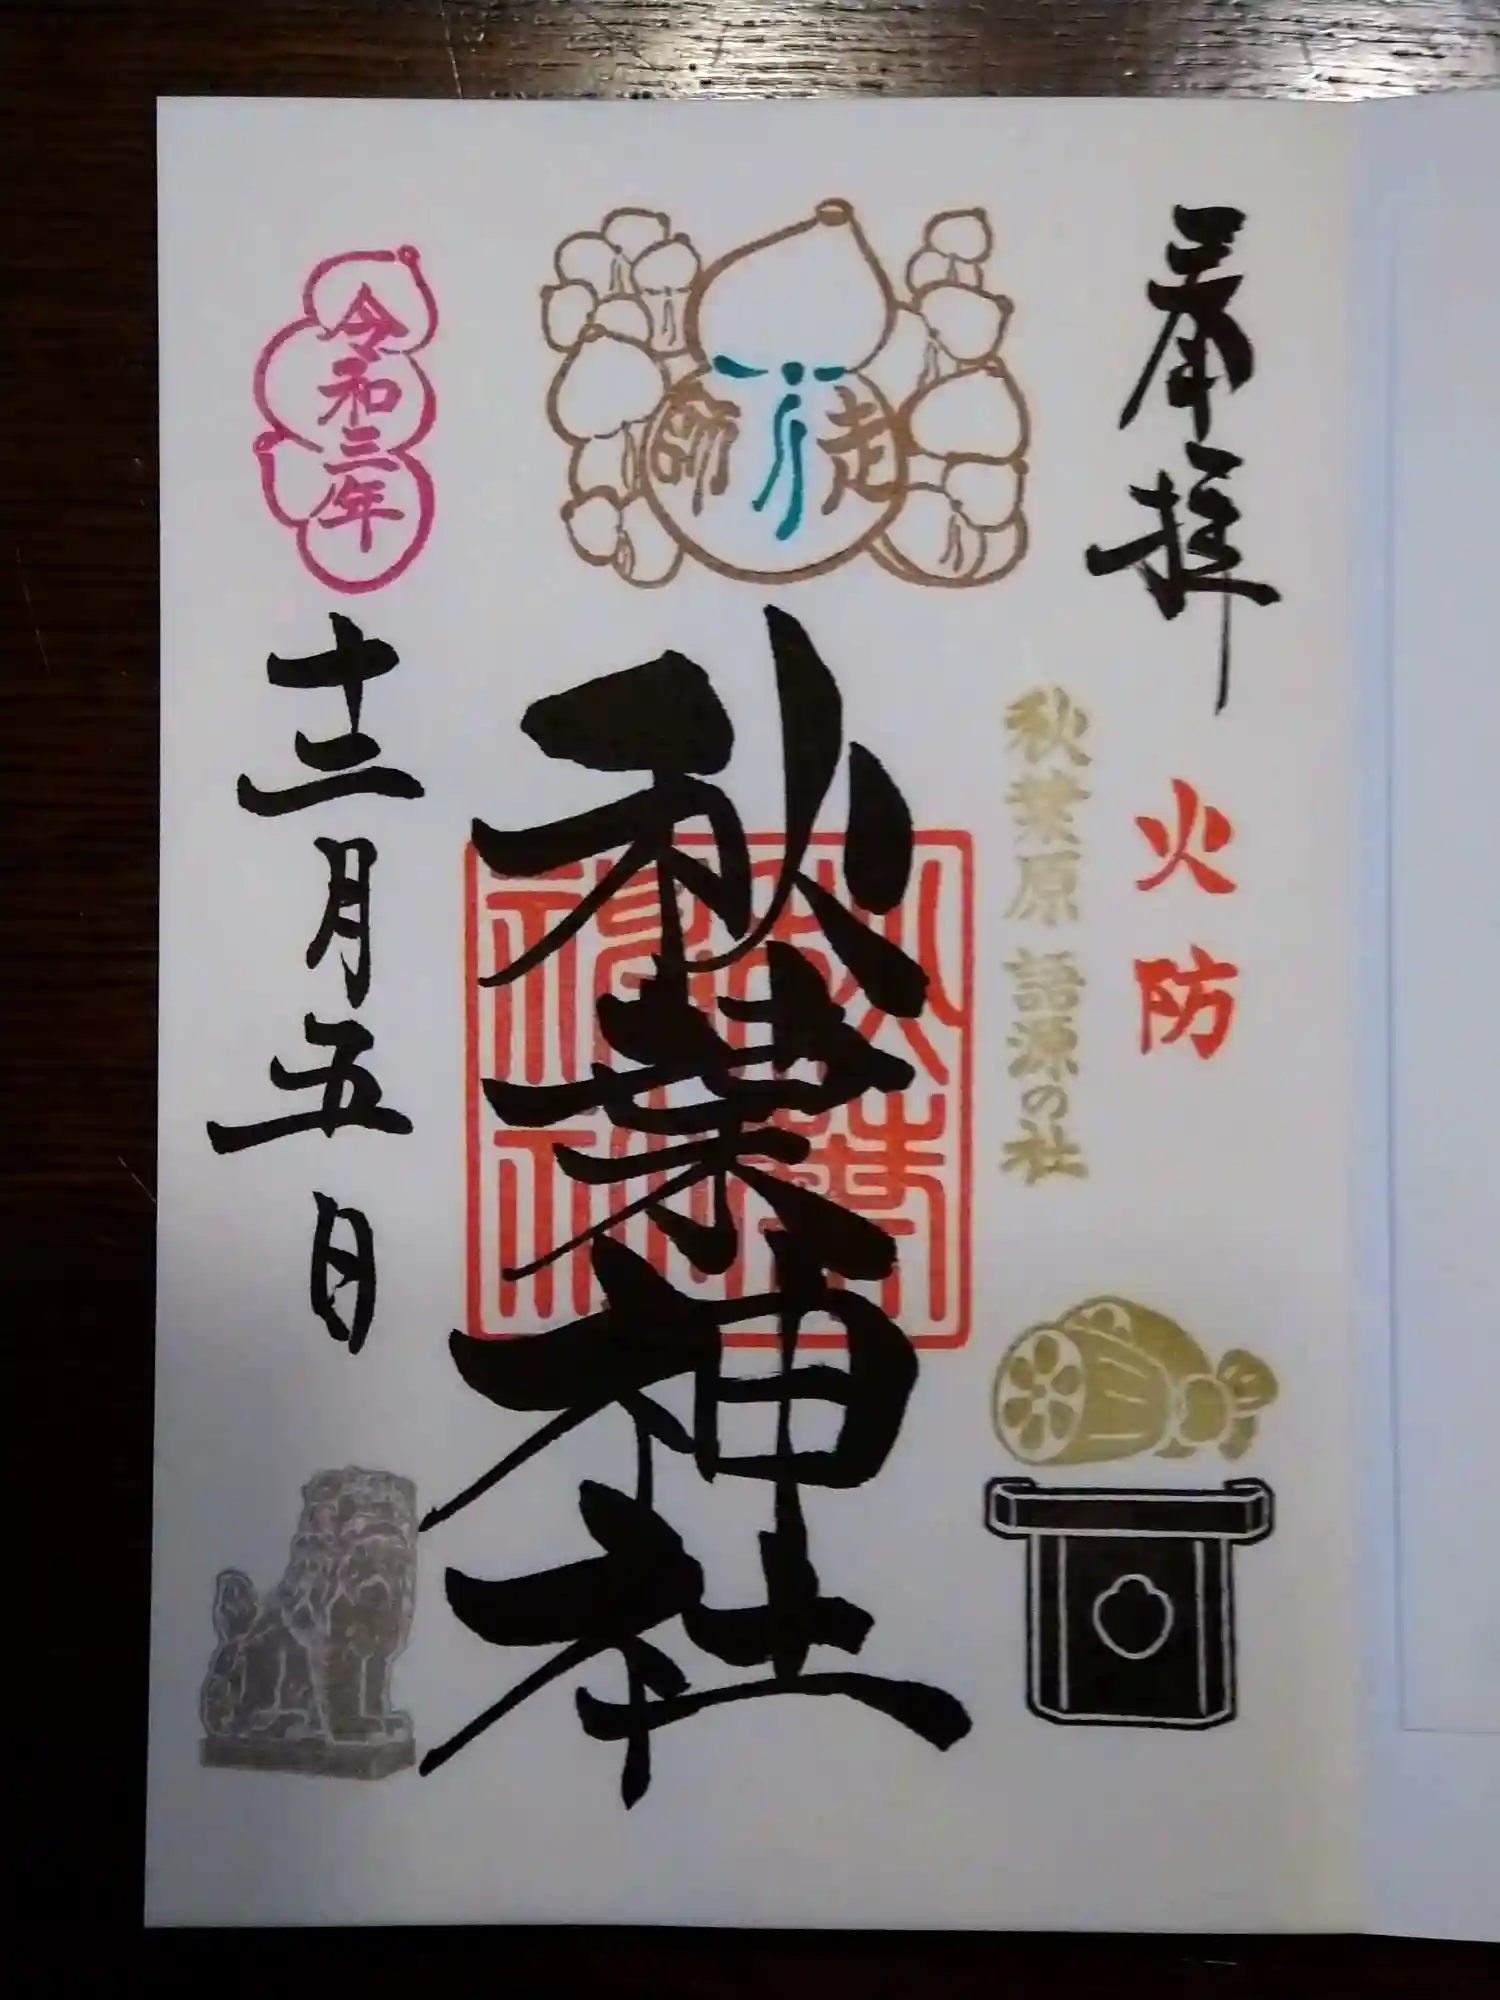 奉拝
火防
秋葉原 語源の社
師走
秋葉神社
令和三年
十二月五日